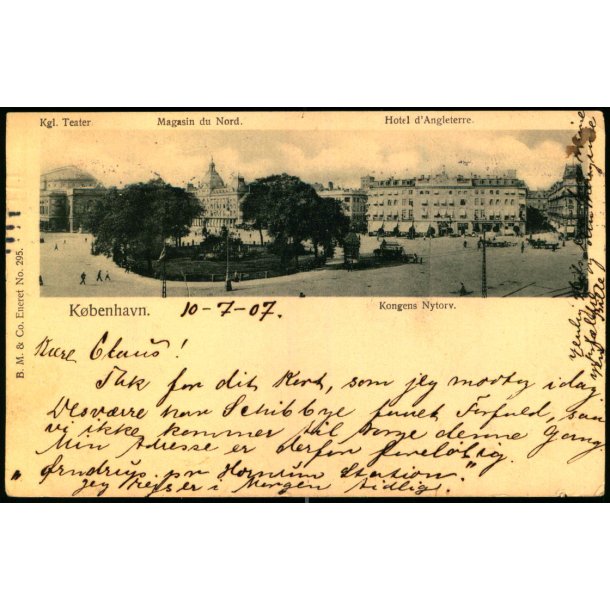 Kgl. Teater
Magasin du Nord.
Hotel d'Angleterre.
B. M. & Co. Eneret No. 295.
København.
10-7-07.
Kongens Nytorv.
Kære Claus!
Tak for dit Kort, som jeg modtog idag.
Desværre har Schibbye faaet Forfald, saa
vi ikke kommer til Norge denne Gang.
Min Adresse er derfor foreløbig
" pr Hornum Station."
Jeg rejser i Morgen tidlig.
Venlig Hilsen